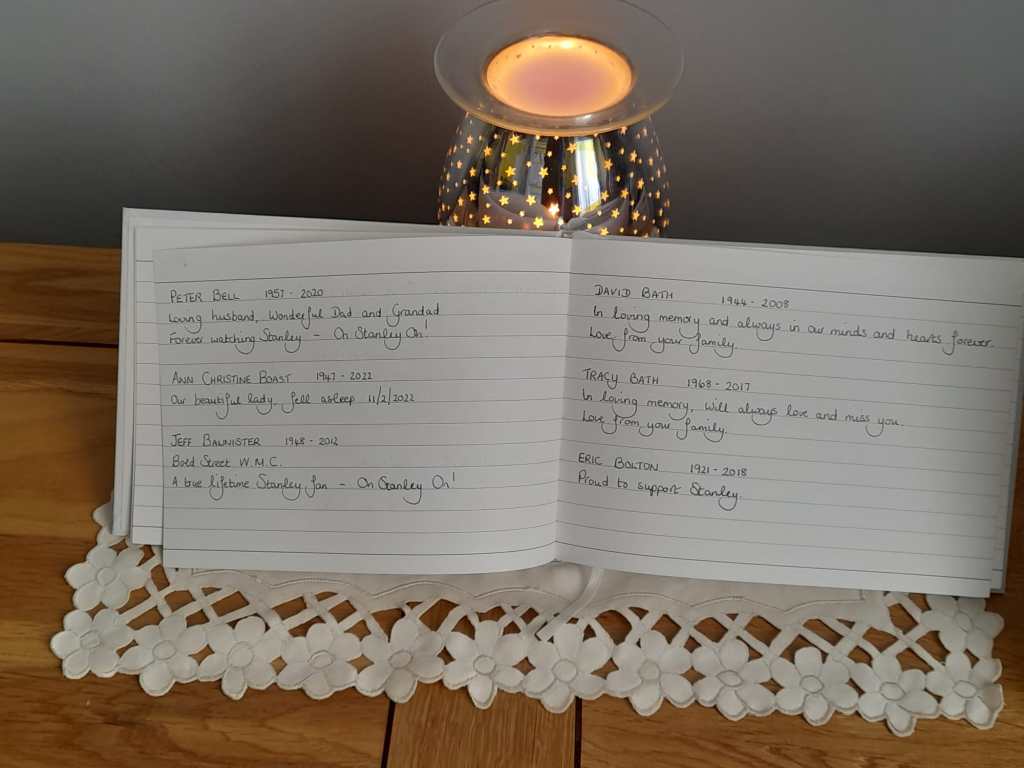 PETER BELL 1957 - 2020
Loving husband, Wonderful Dad and Grandad
Forever watching Stanley - On Stanley On!
ANN CHRISTINE BOAST 1947 - 2022
Our beautiful lady. fell asleep 11/2/2022
JEFF BANNISTER 1948 - 2012
Bold Street W.M.C.
A true lifetime Stanley fan - On Stanley On!
DAVID BATH 1944 - 2008
In loving memory and always in our minds and hearts forever.
Love from your family.
TRACY BATH 1968 - 2017
In loving memory, Will always love and miss you.
Love from your family.
ERIC BOLTON 1921 - 2018
Proud to support Stanley.